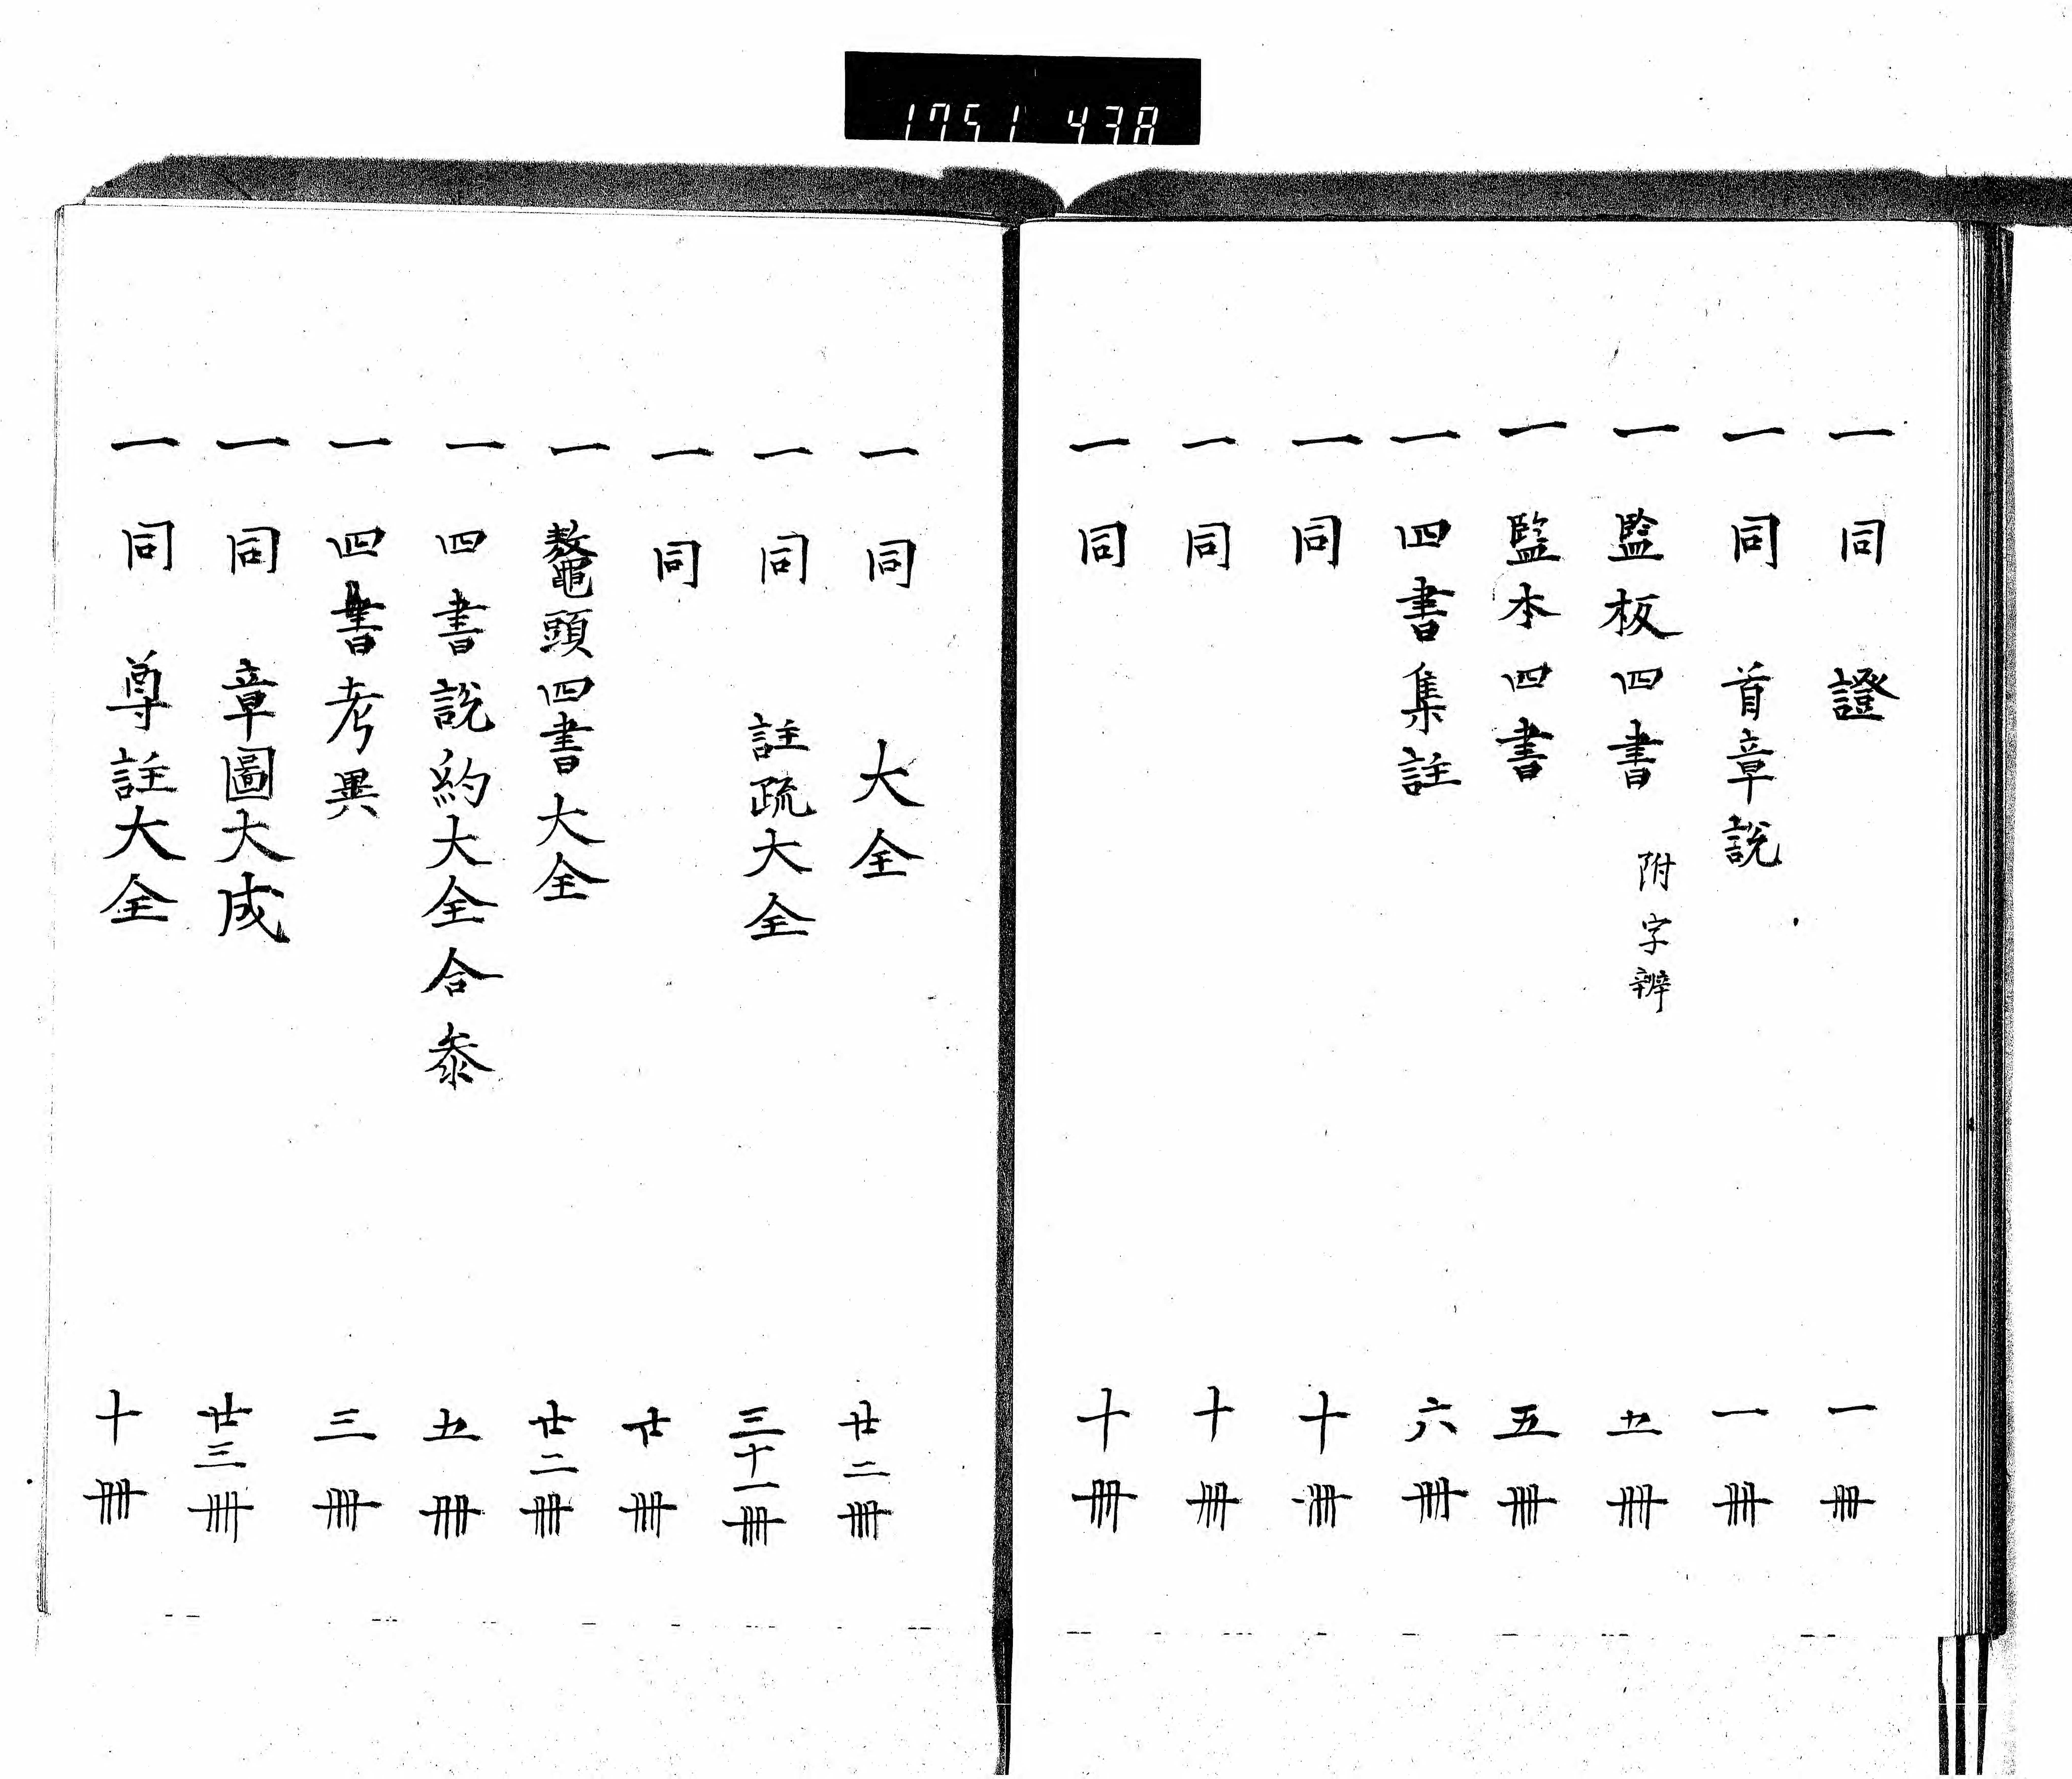 1751 438
一 同 證 一冊
一 同 首章説 一冊
一 監板四書 附字辨 五冊
一 監本四書 五冊
一 四書集註 六冊
一 同 十冊
一 同 十冊
一 同 十冊
一 同 大全 廿二冊
一 同 註疏大全 三十一冊
一 同 廿冊
一 鼇頭四書大全 廿二冊
一 四書説約大全合叅 五冊
一 四書考異 三冊
一 同 章圖大成 廿三冊
一 同 尊註大全 十冊